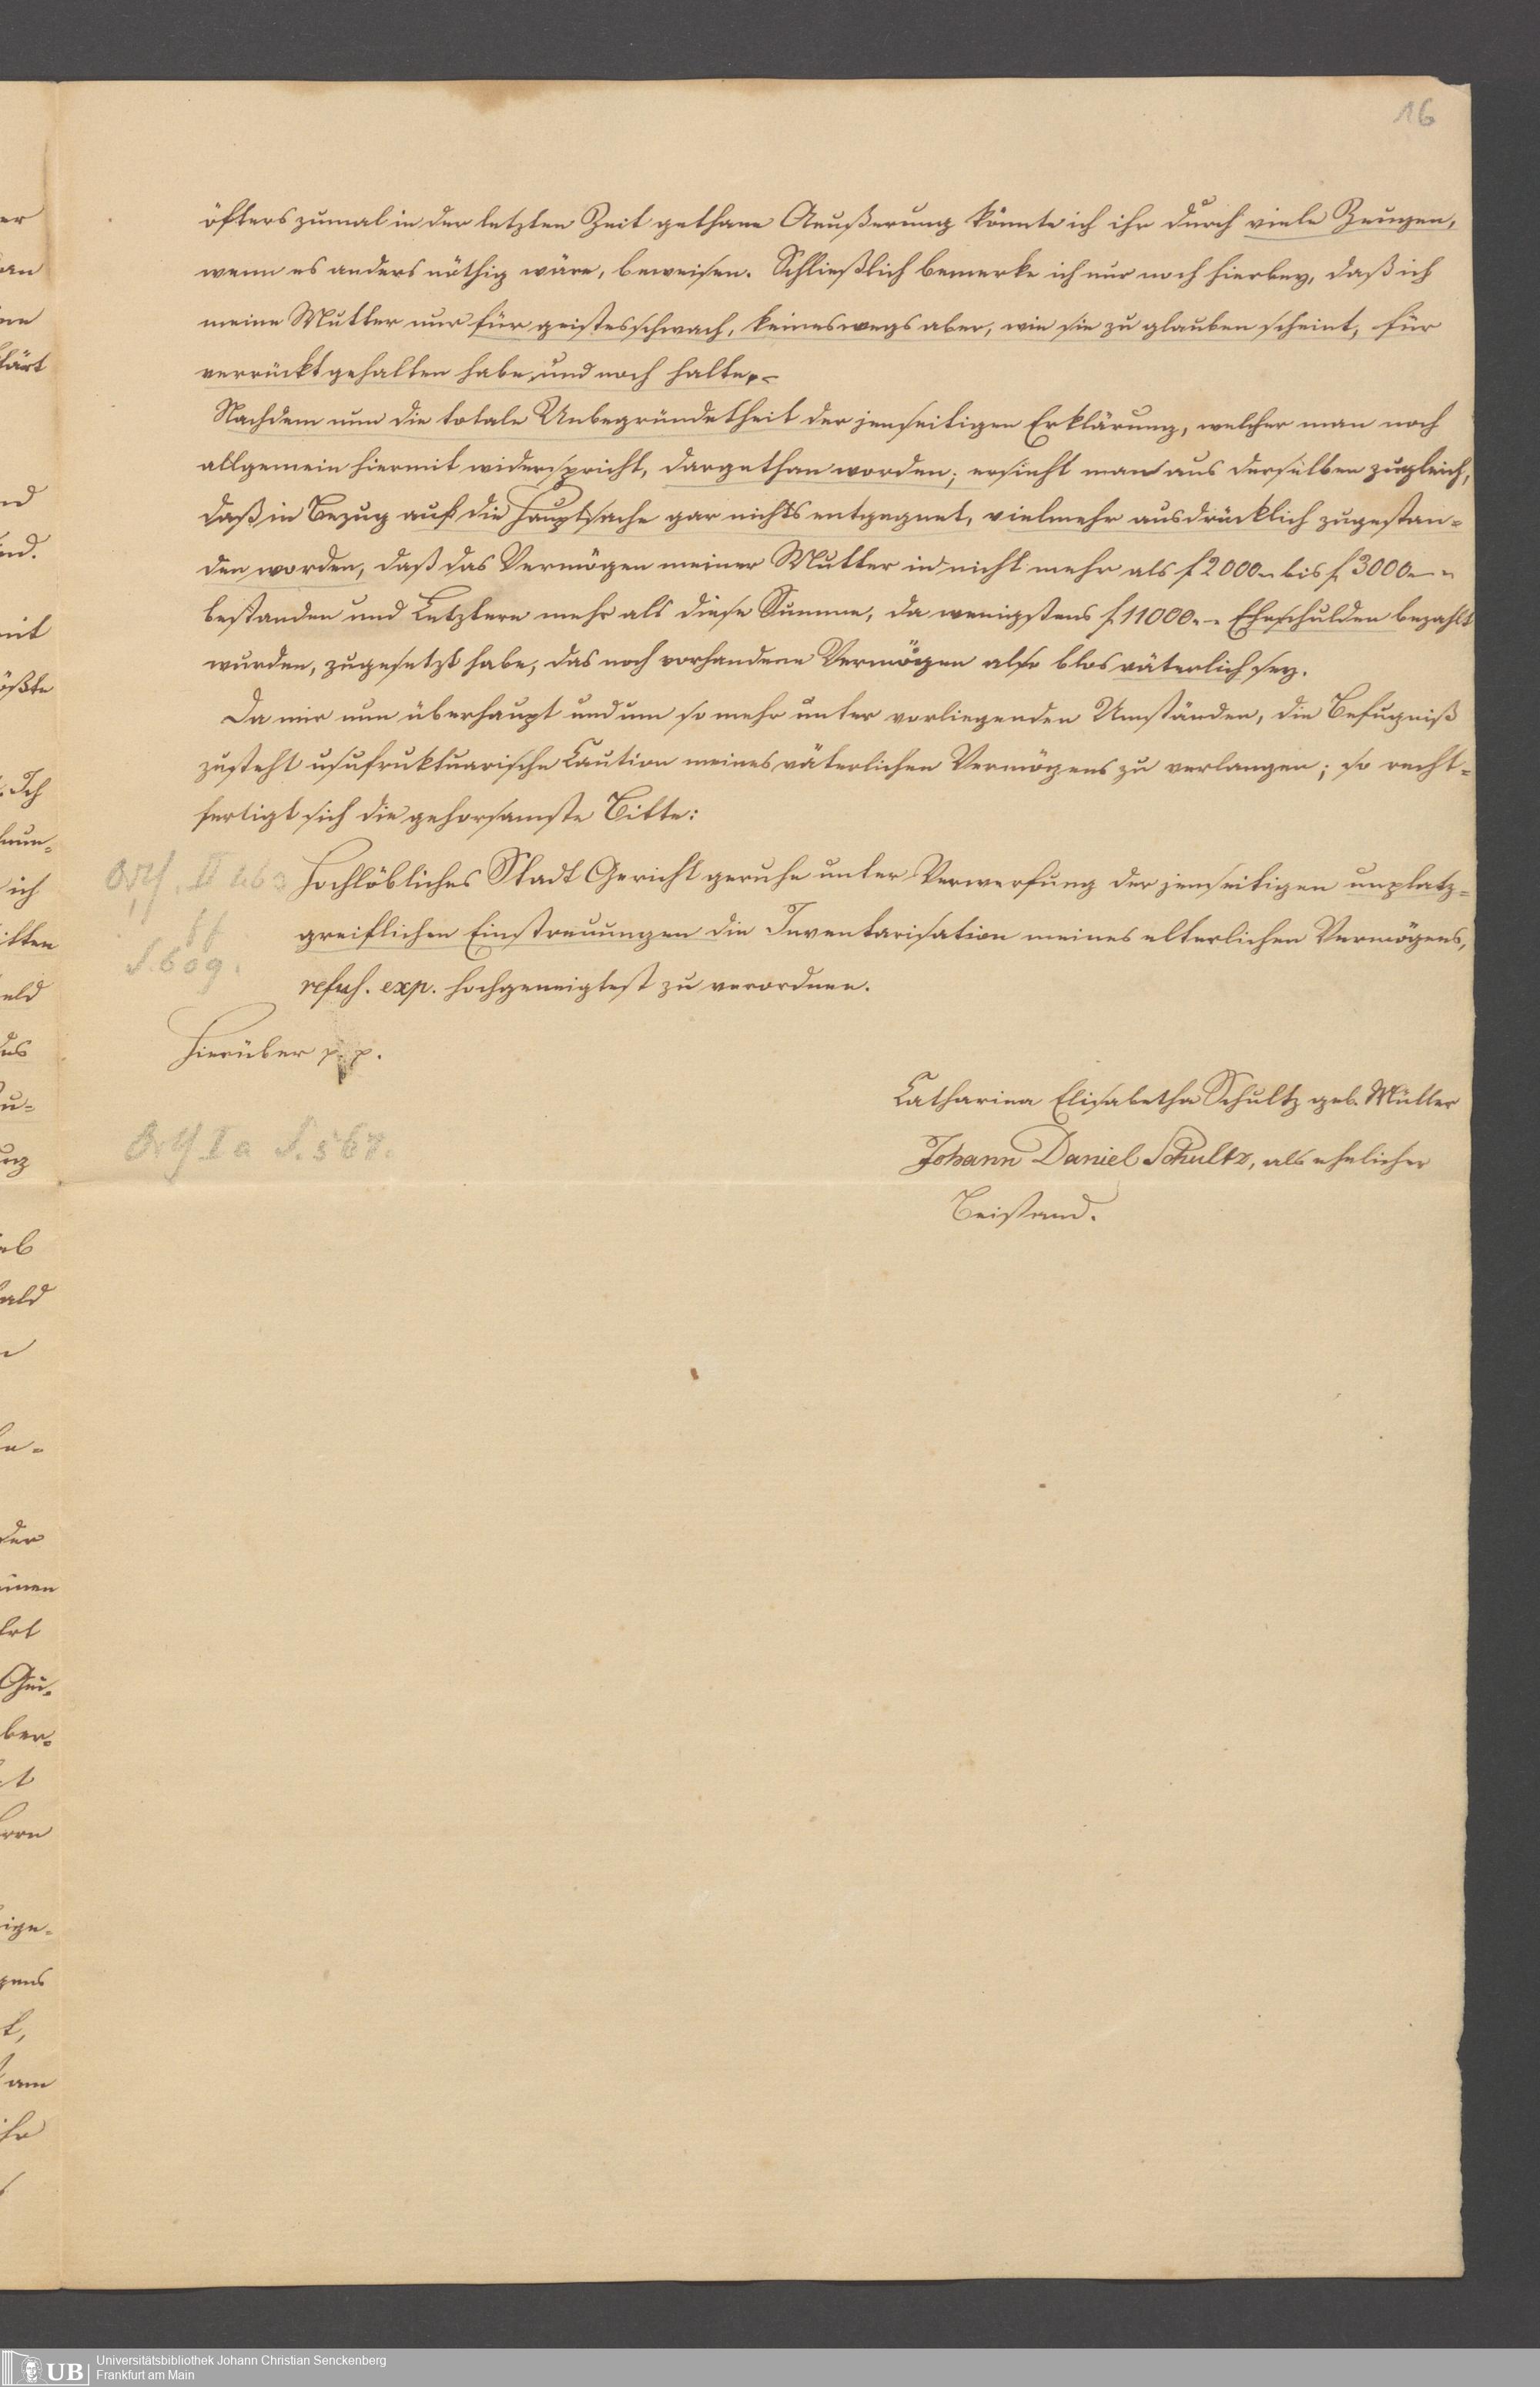 16
öfters zumal in der letzten Zeit gethane Aeußerung könnte ich ihr durch viele Zeugen,
wenn es anders nöthig wäre, beweisen. Schließlich bemerke ich nur noch hierbey, daß ich
meine Mutter nur für geistesschwach, keineswegs aber, wie sie zu glauben scheint, für
verrückt gehalten habe und noch halte.
Nachdem nun die totale Unbegründetheit der jenseitigen Erklärung, welcher man noch
allgemein hiermit widerspricht, dargethan worden; ersieht man aus derselben zugleich,
daß in Bezug auf die Hauptsache gar nichts entgegnet, vielmehr ausdrücklich zugestan-
den worden, daß das Vermögen meiner Mutter in nicht mehr als f 2000 bis f 3000
bestanden und Letztere mehr als diese Summe, da wenigstens f 11000 Eheschulden bezahlt
wurden, zugesetzt habe, das noch vorhandene Vermögen also blos väterlich sey.
Da mir nun überhaupt und um so mehr unter vorliegenden Umständen, die Befugniß
zusteht usufruktuarische Caution meines väterlichen Vermögens zu verlangen; so recht-
fertigt sich die gehorsamste Bitte:
Hochlöbliches Stadt Gericht geruhe unter Verwerfung der jenseitigen unplatz-
greiflichen Einstreuungen die Inventarisation meines elterlichen Vermögens,
refus. exp. hochgeneigtest zu verordnen.
ff
S. 609.
Hierüber p. p.
Catharina Elisabetha Schultz geb. Müller
I a S. 568.
Johann Daniel Schultz, als ehelicher
Beistand.
UB
Universitätsbibliothek Johann Christian Senckenberg
Frankfurt am Main